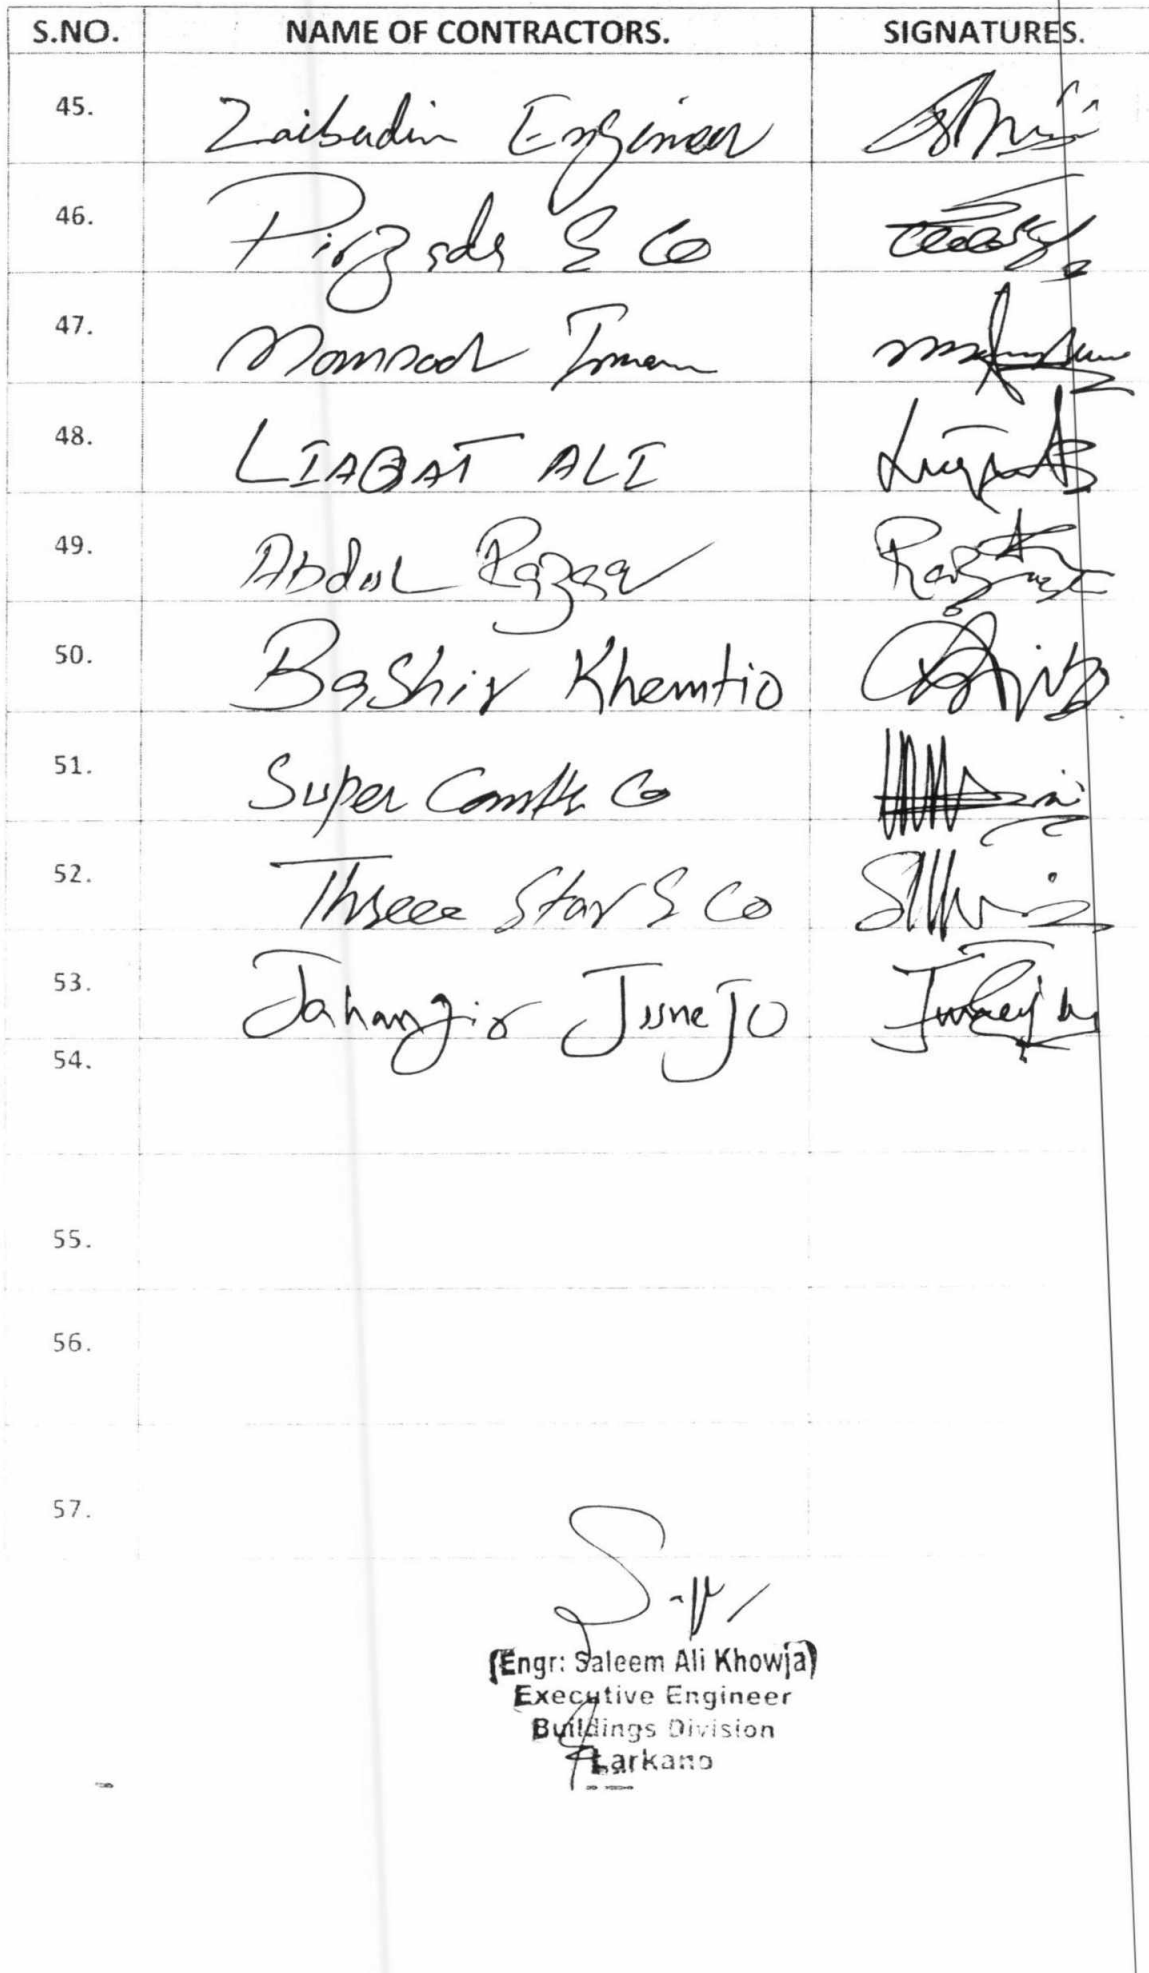 S.NO. NAME OF CONTRACTORS. SIGNATURES.
45. Zaibudin Engineer
46. Pirzada & Co
47. Imam
48. LIAQAT ALI
49. Abdul Razaq
50. Bashir Khemtio
51. Super Co
52. Threee Star & Co
53. Jahangir Junejo
54.
55.
56.
57.
(Engr: Saleem Ali Khowja)
Executive Engineer
Buildings Division
Larkano